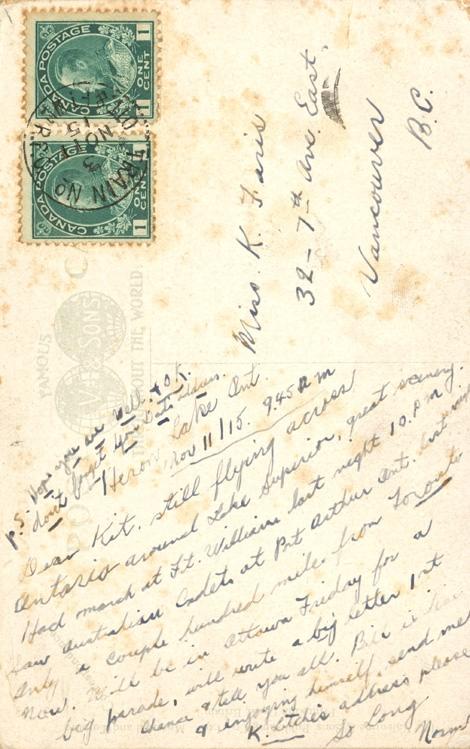 CANADA POSTAGE
ONE CENT
1 1
CANADA POSTAGE
ONE CENT
1 1
TRAIN No
3
NO 11
15
Miss. K. Faris
32 - 7th Ave. East.
Vancouver
B.C.
FAMOUS
SONS
THE WORLD
P.S. Hope you are well. & O.K.
don't forget
Heron Lake Ont.
Nov 11/15. 9.45 a m
Dear Kit. still flying across
Ontario around Lake Superior, great scenery.
Had march at Ft. William last night 10. P.M.
Saw Australian Cadets at Port Arthur Ont. last night
Only a couple hundred miles from Toronto
Now. Will be in Ottawa Friday for a
big parade, will write a big letter 1st
chance & tell you all. Bill is here
& enjoying himself, send me
K. Litches address please
So Long
Norm